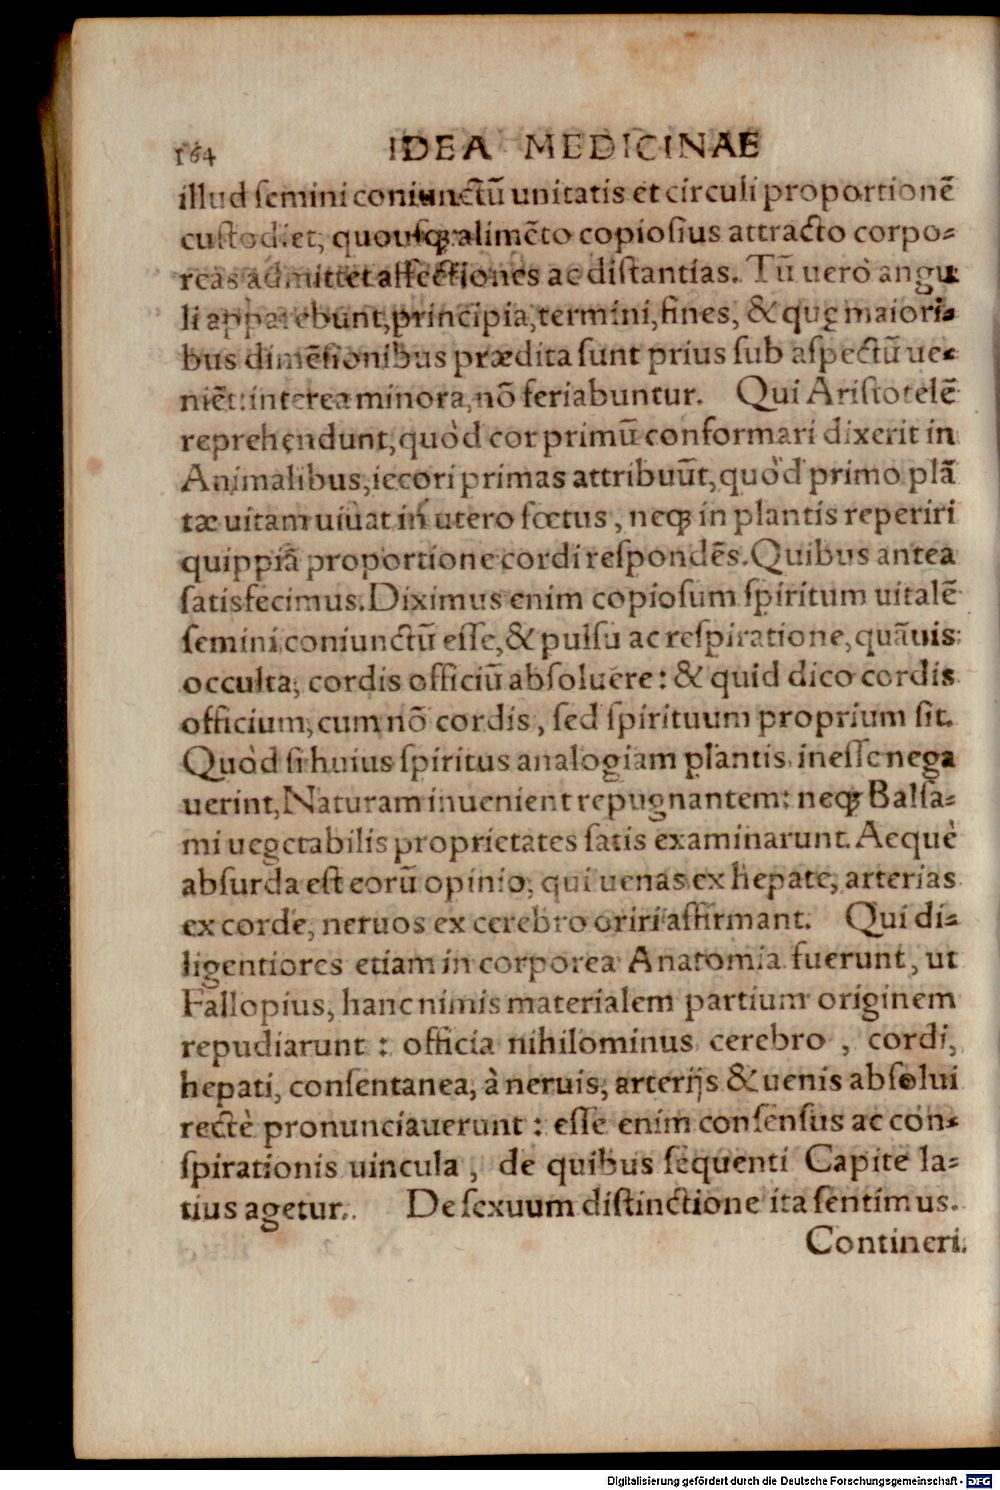 164 IDEA MEDICINAE
illud ſemini coniunctũ unitatis et circuli proportionẽ
cuſtodiet, quouſqꝫ alimẽto copioſius attracto corpo-
reas admittet affectiones ac diſtantias. Tũ uerò angu
li apparebunt, principia, termini, fines, & quę maiori-
bus dimẽſionibus prædita ſunt prius ſub aſpectũ ue-
niẽt: interea minora, nõ feriabuntur. Qui Ariſtotelẽ
reprehendunt, quòd cor primũ conformari dixerit in
Animalibus, iecori primas attribuũt, quòd primo plã
tæ uitam uiuat in utero fœtus, neqꝫ in plantis reperiri
quippiã proportione cordi reſpondẽs. Quibus antea
ſatisfecimus. Diximus enim copioſum ſpiritum uitalẽ
ſemini coniunctũ eſſe, & pulſu ac reſpiratione, quãuis
occulta, cordis officiũ abſoluere: & quid dico cordis
officium, cum nõ cordis, ſed ſpirituum proprium ſit.
Quòd ſi huius ſpiritus analogiam plantis ineſſe nega
uerint, Naturam inuenient repugnantem: neqꝫ Balſa-
mi uegetabilis proprietates ſatis examinarunt. Aequè
abſurda eſt eorũ opinio, qui uenas ex hepate, arterias
ex corde, neruos ex cerebro oriri affirmant. Qui di-
ligentiores etiam in corporea Anatomia fuerunt, ut
Fallopius, hanc nimis materialem partium originem
repudiarunt: officia nihilominus cerebro, cordi,
hepati, conſentanea, à neruis, arterijs & uenis abſolui
rectè pronunciauerunt: eſſe enim conſenſus ac con-
ſpirationis uincula, de quibus ſequenti Capite la-
tius agetur. De ſexuum diſtinctione ita ſentimus.
Contineri
Digitalisierung gefördert durch die Deutsche Forschungsgemeinschaft - DFG